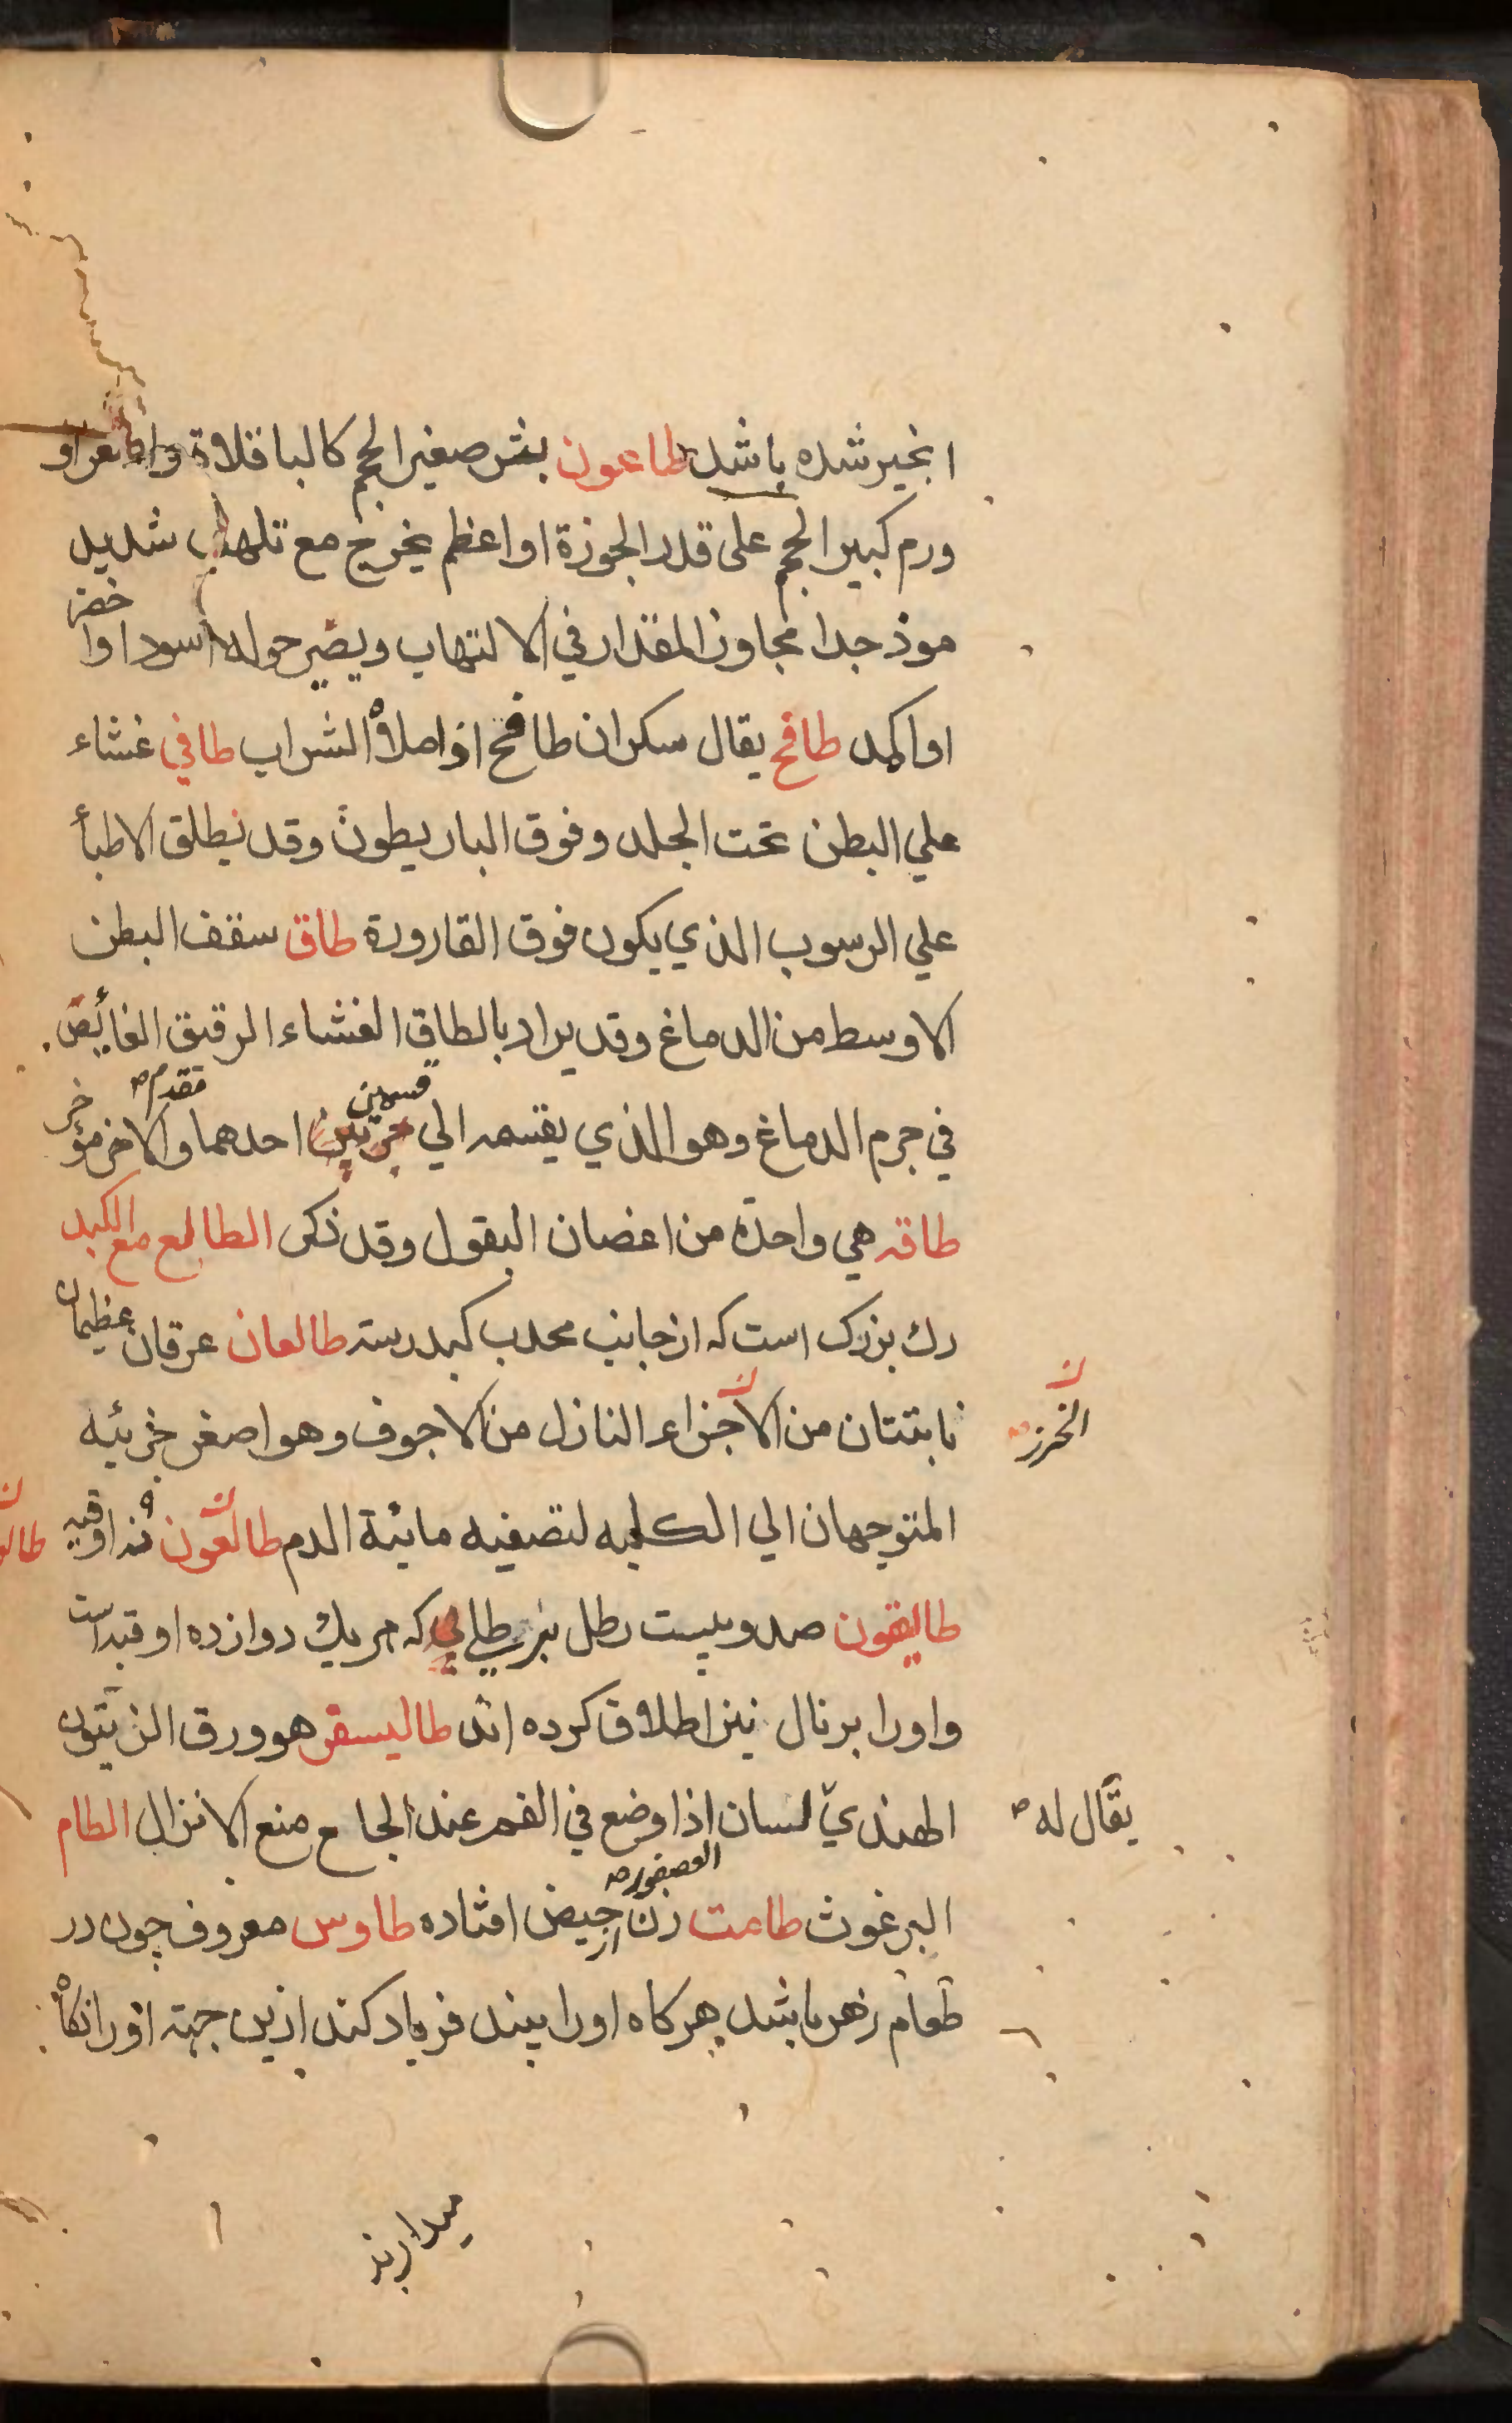 انجیر شده باشد طاعون بثر صغیر الحجم کالباقلاة واصغر او
ورم کبیر الحجم علی قدر الجوزة او اعظم یخرج مع تلهب شدید
موذ جدا مجاوز المقدار فی الالتهاب ویصیر حوله اسود او اخضر
او اکمد طافح یقال سکران طافح اذا ملأه الشراب طافي غشاء
علي البطن تحت الجلد وفوق الباریطون وقد یطلق الاطبأ
علي الرسوب الذي یکون فوق القارورة طاق سقف البطن
الاوسط من الدماغ وقد یراد بالطاق الغشاء الرقیق الغائص
في جرم الدماغ وهو الذي یقسمه الي قسمین احدهما مقدم والاخر مؤخر
طاقه هي واحدة من اغصان البقول وقد ذکر الطالع مع الکبد
رك بزرك است که از جانب محدب کبد رسته طالعان عرقان عظیمان
نابتتان من الاجزاء النازل من الاجوف وهو اصغر جزئیه
الخرز
المتوجهان الي الکلیه لتصفیه مائیة الدم طالعون نه اوقیه
طالیقون صد و بیست رطل برطلی که هر یك دوازده اوقیه است
واورا برنال نیز اطلاق کرده اند طالیسقر هو ورق الزیتون
الهندي لسان العصفور اذا وضع في الفم عند الجماع منع الانزال الطام
یقال له
البرغوث طامت زن از حیض افتاده طاوس معروف چون در
طعام زهر باشد هرکاه اورا بیند فریاد کند ازین جهة اورا نکاه
میدارند